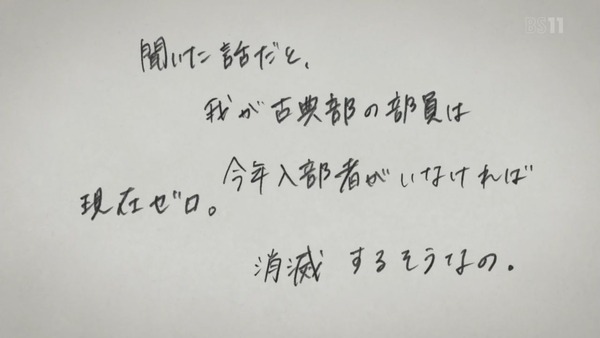 BS11
聞いた話だと、
我が古典部の部員は
現在ゼロ。
今年入部者がいなければ
消滅するそうなの。